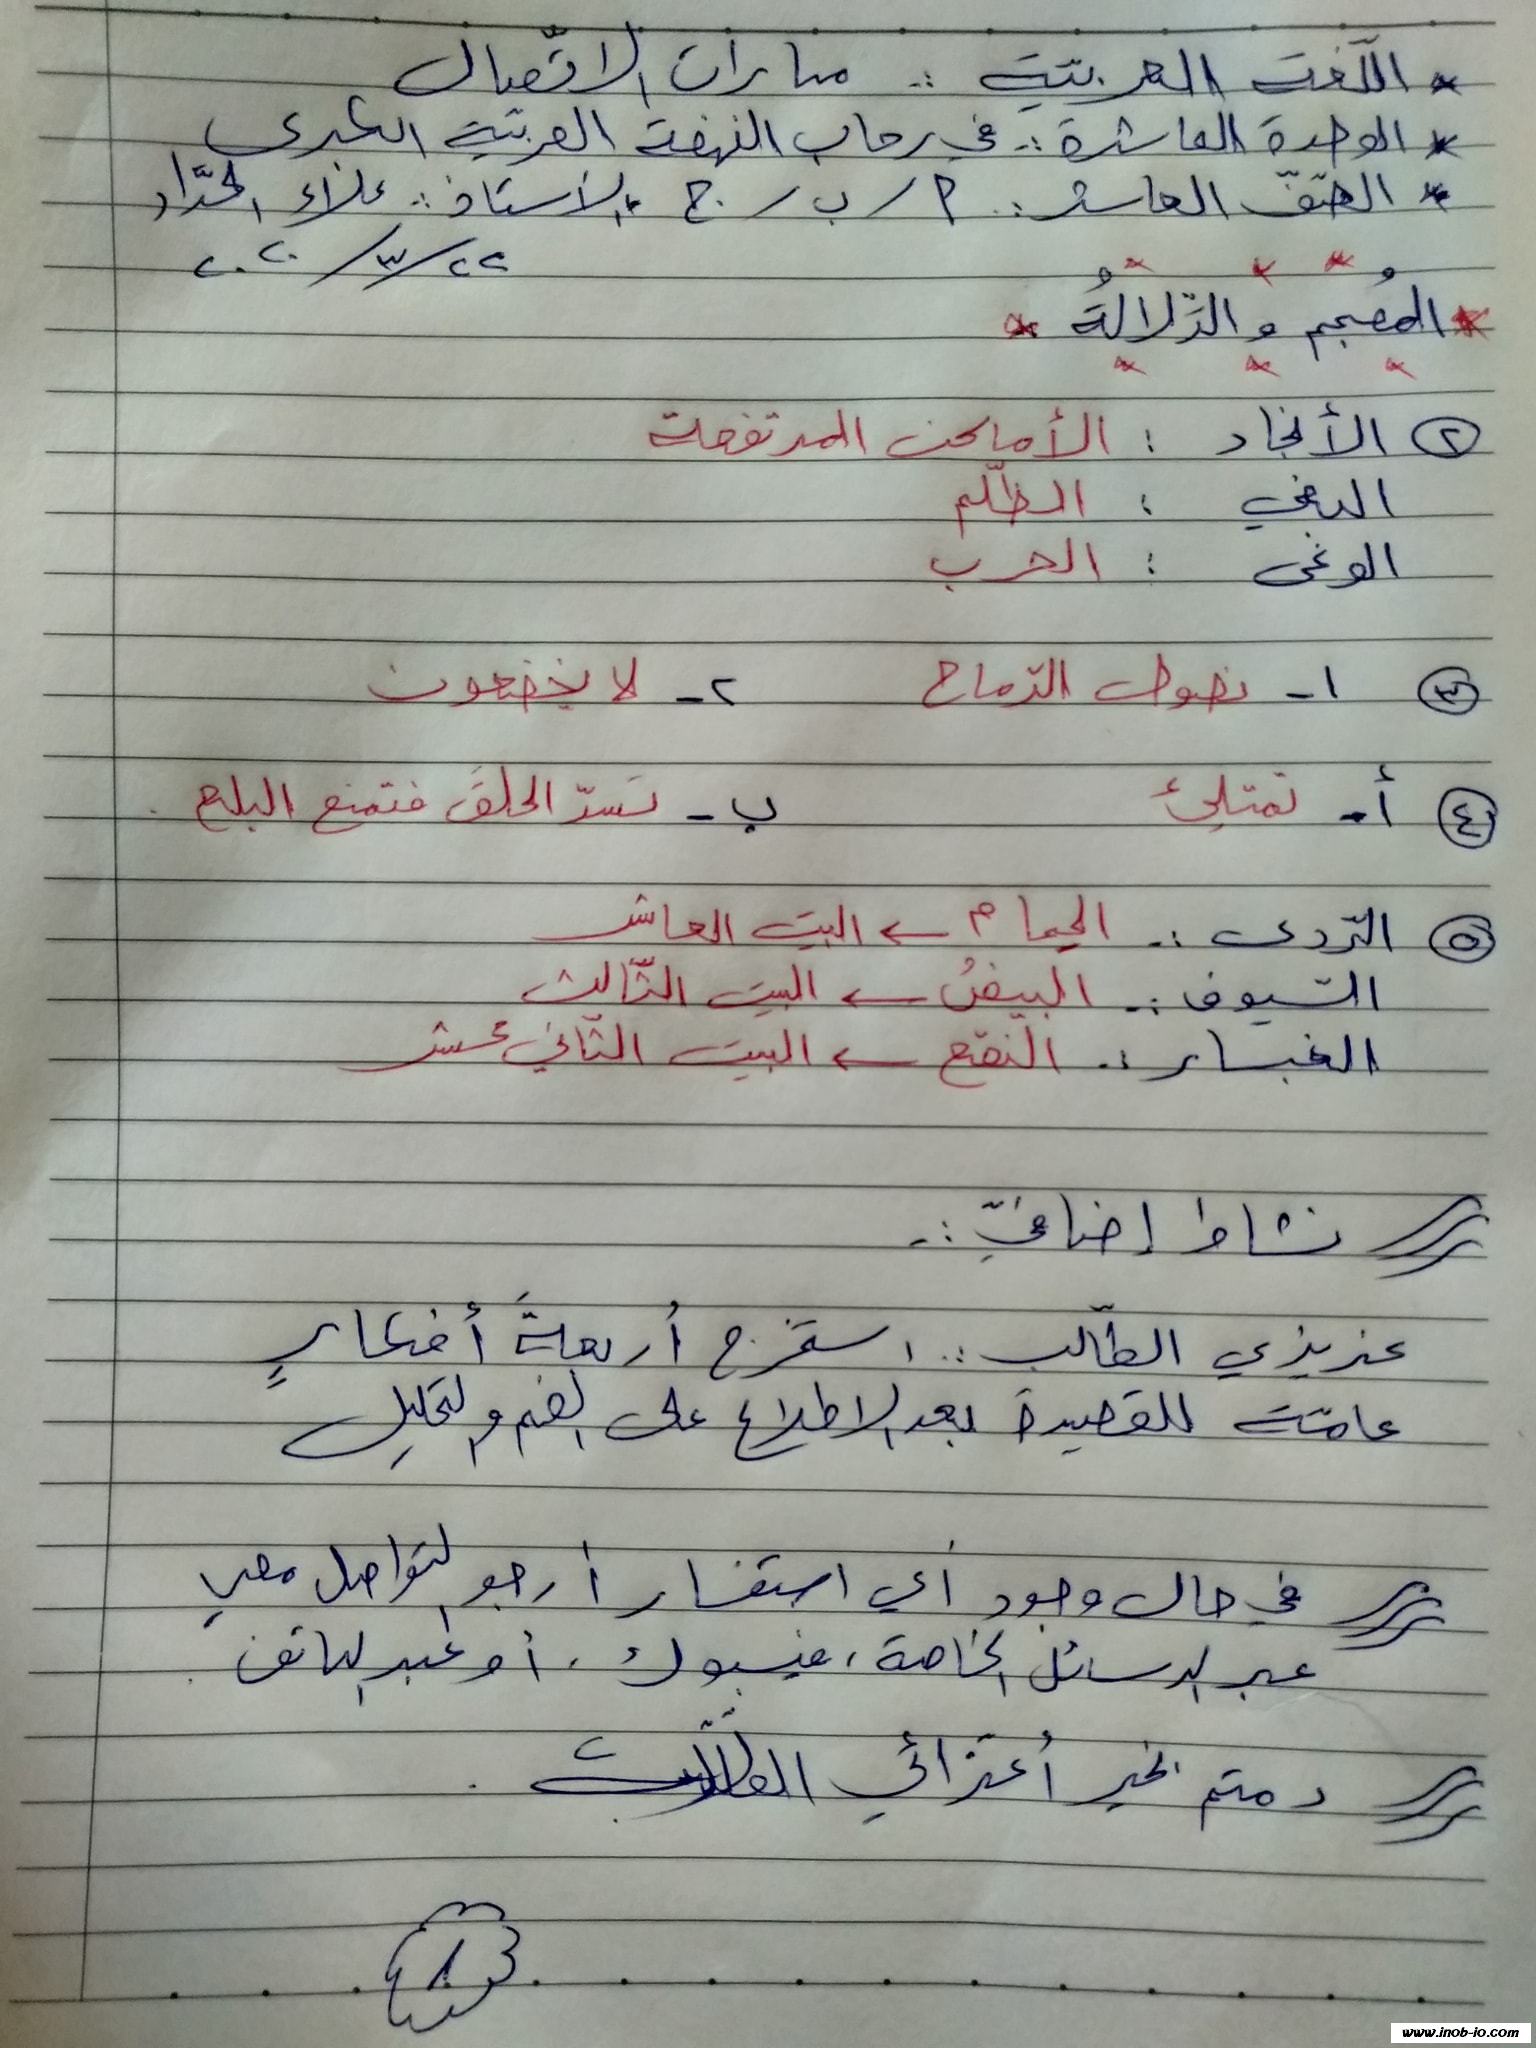 * اللّغة العربيّة :. مهارات الاتّصال
* الوحدة العاشرة :. في رحاب النهضة العربيّة الكبرى
* الصّفّ العاشر :. أ / ب / ج * الأستاذ :. علاء الحدّاد
٢٢ / ٣ / ٢٠٢٠
* المُعجم والدّلالةُ *
٢ الأنجاد : الأماكن المرتفعة
البغي : الظّلم
الوغى : الحرب
٣ ١ـ نصول الرّماح ٢ـ لا يخضعون
٤ أـ تمتلئ ب ـ تسدّ الحلقَ فتمنع البلع .
٥ الرّدى :. الحِمام ← البيت العاشر
السّيوف :. البيضُ ← البيت الثّالث
الغبار :. النّقع ← البيت الثّاني عشر
نشاط إضافيّ :.
عزيزي الطّالب :. استخرج أربعةَ أفكارٍ
عامّة للقصيدة بعد الاطلاع على الفهم والتحليل
في حال وجود أي استفسار أرجو التواصل معي
عبر الرسائل الخاصة ، فيسبوك ، أو عبر الهاتف .
دمتم بخير أعزائي .
١
www.inob-jo.com